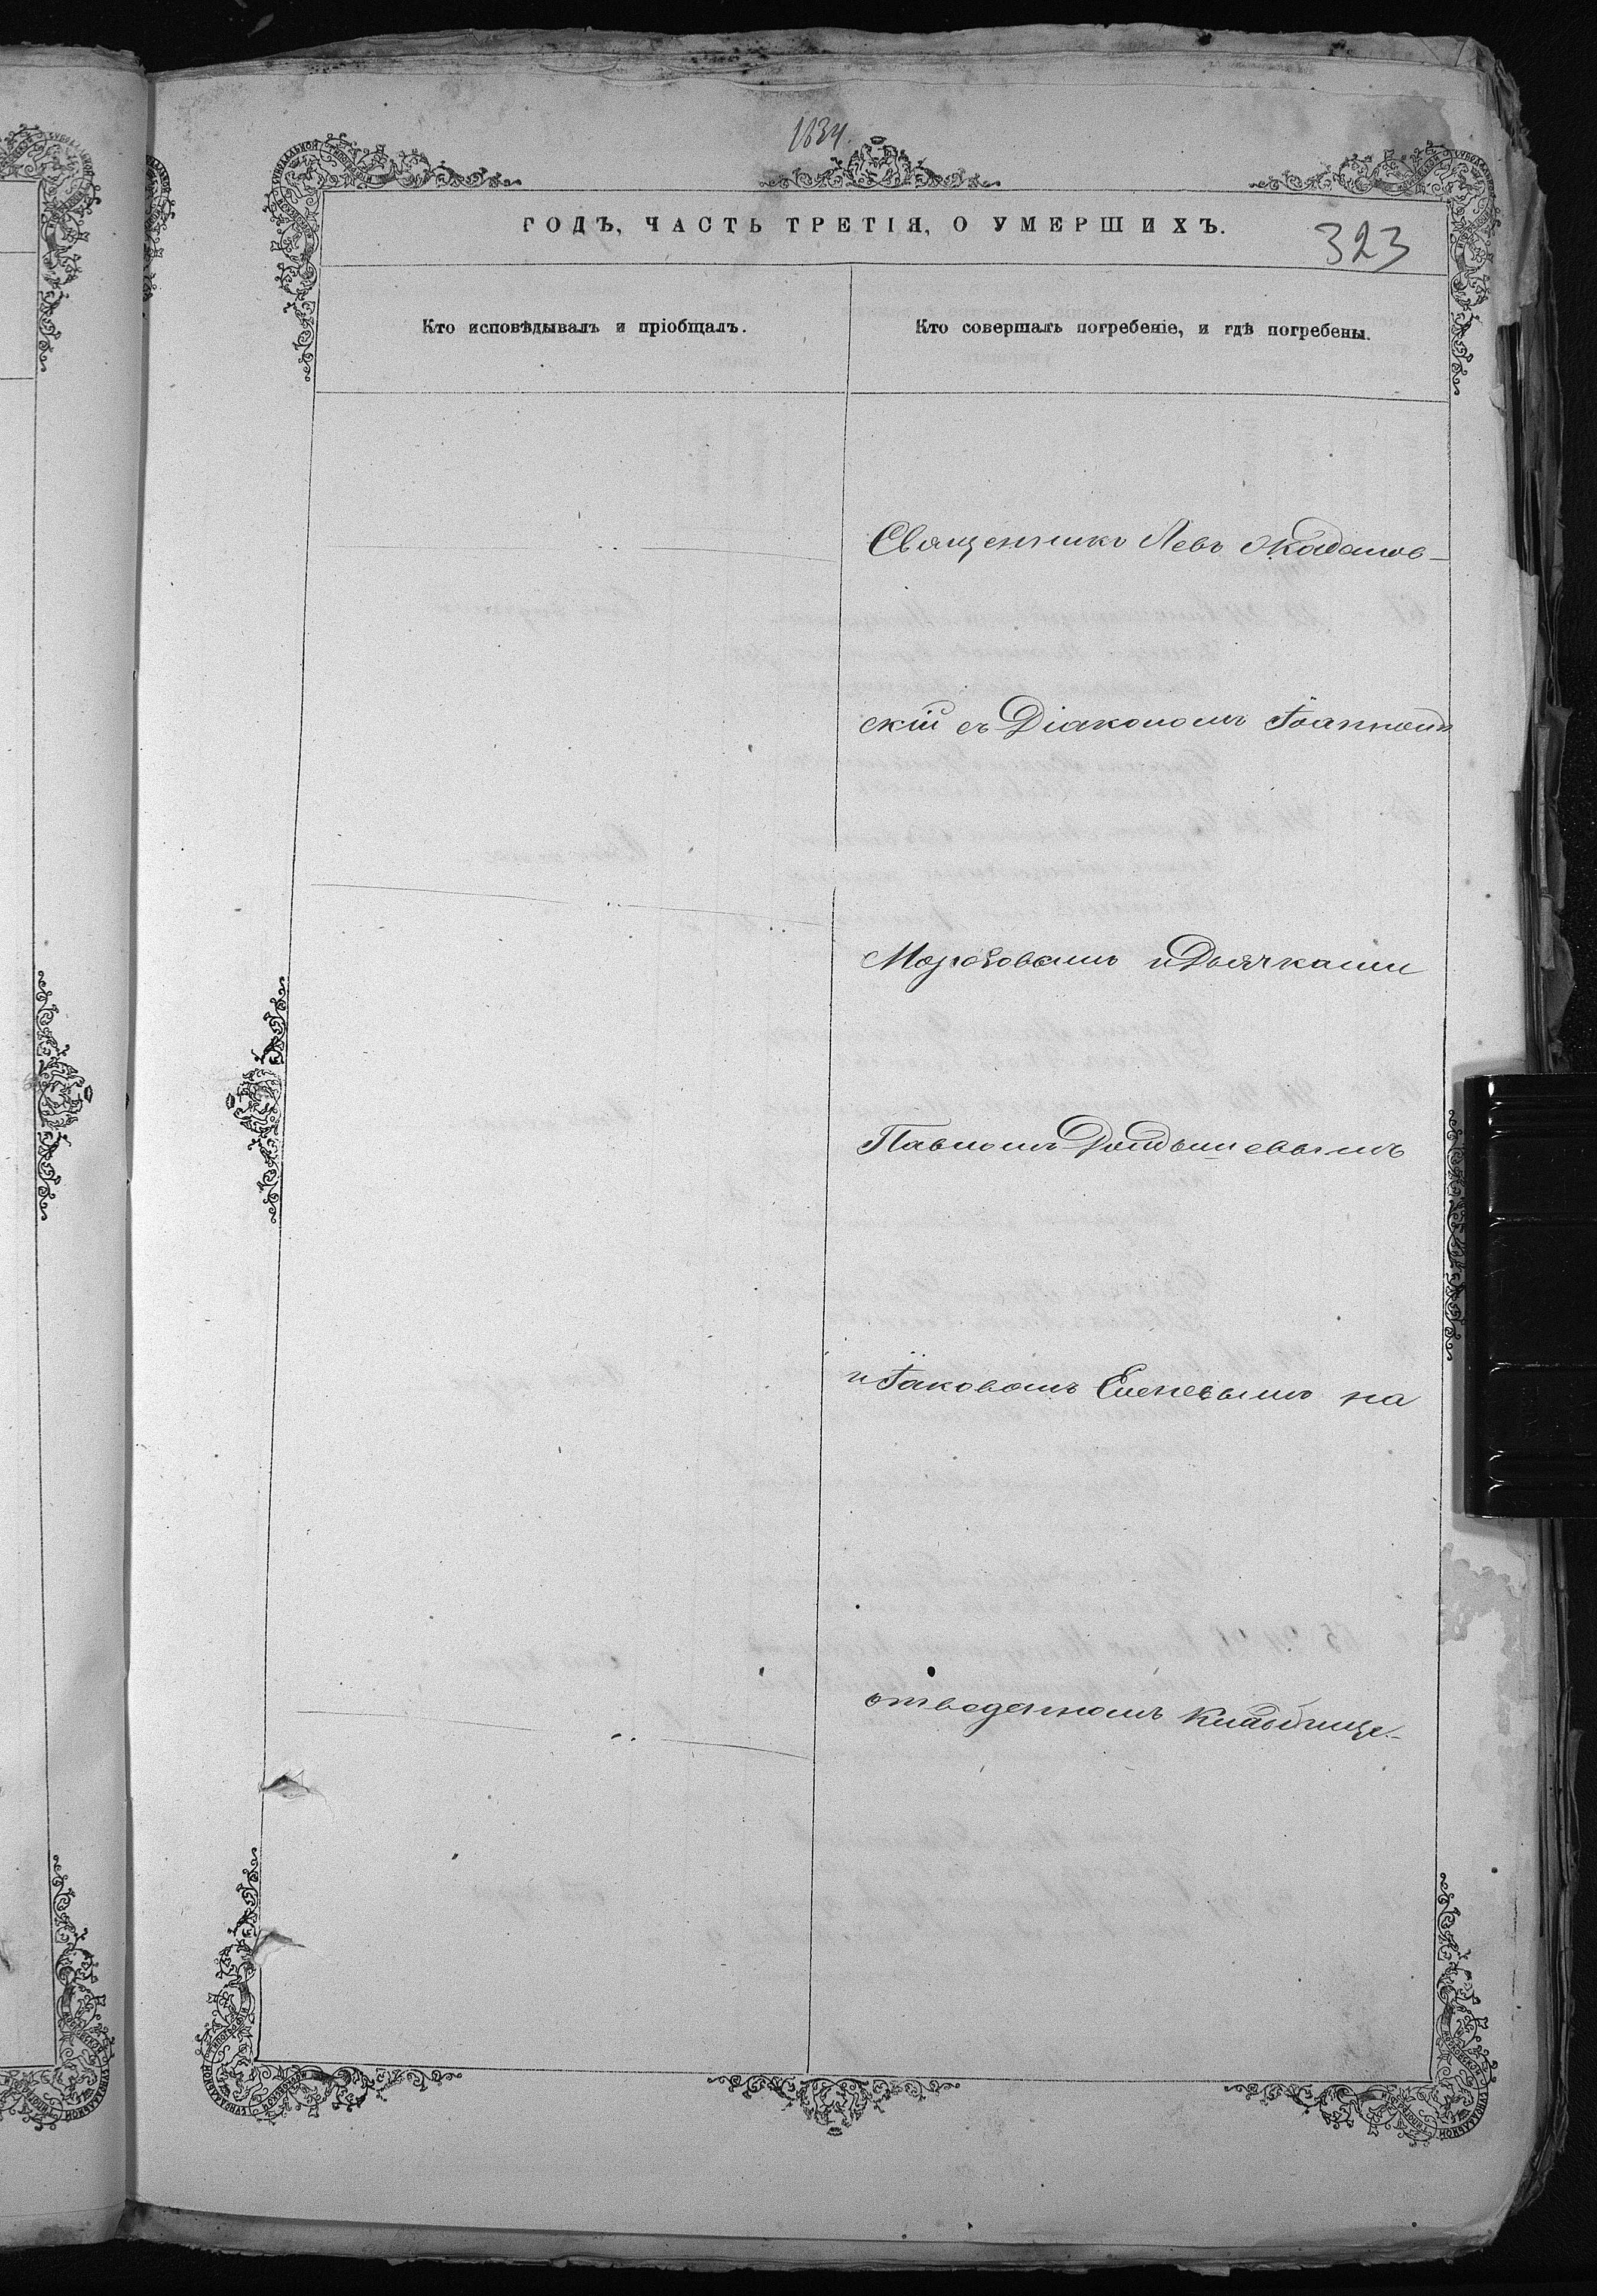 1834.
ГОДЪ, ЧАСТЬ ТРЕТІЯ, О УМЕРШИХЪ.
323
Кто исповѣдывалъ и пріобщалъ.
Кто совершалъ погребеніе, и гдѣ погребены.
Священникъ Левъ
скій съ Діакономъ Іоанномъ
Морозовымъ и Дьячками
Павломъ
и Іаковомъ Еленевымъ на
отведенномъ кладбище.